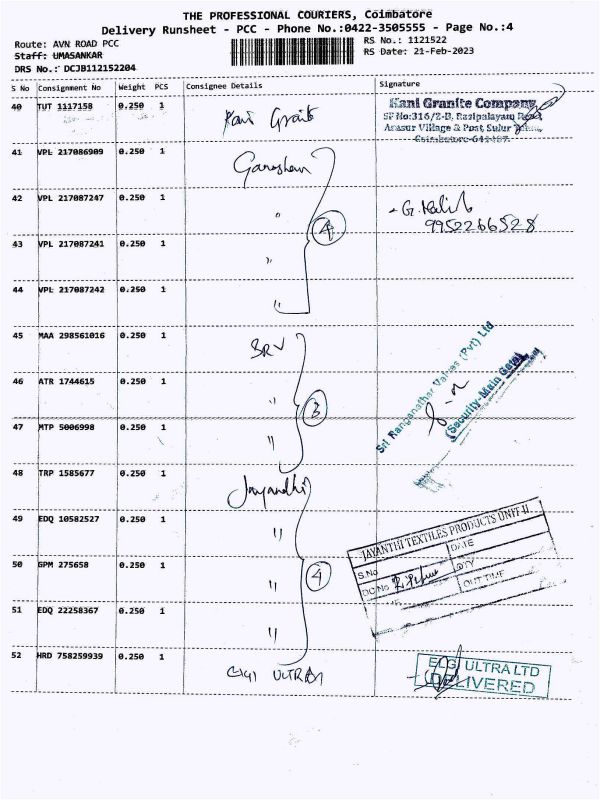 THE PROFESSIONAL COURIERS, Coimbatore
Delivery Runsheet - PCC - Phone No.:0422-3505555 - Page No.:4
Route: AVN ROAD PCC
RS No.: 1121522
Staff: UMASANKAR
RS Date: 21-Feb-2023
DRS No.: DCJB112152204
S No Consignment No Weight PCS Consignee Details Signature
40 TUT 1117158 0.250 1
Kani Granite Company
SF No:316/2-B, Rasipalayam Road,
Arasur Village & Post, Sulur
Coimbatore-641407.
41 VPL 217086909 0.250 1 Ganeshan
42 VPL 217087247 0.250 1 "
9952266528
4
43 VPL 217087241 0.250 1 "
44 VPL 217087242 0.250 1 "
45 MAA 298561016 0.250 1 SRV
Sri Ranganathar Valves (Pvt) Ltd
(Security-Main Gate)
46 ATR 1744615 0.250 1 "
3
47 MTP 5006998 0.250 1 "
48 TRP 1585677 0.250 1 Jayandhi
49 EDQ 10582527 0.250 1 "
JAYANTHI TEXTILES PRODUCTS UNIT-II
S.No DATE
DC No QTY
OUT TIME
50 GPM 275658 0.250 1 "
4
51 EDQ 22258367 0.250 1 "
52 HRD 758259939 0.250 1 ULTRA
ELGI ULTRA LTD
DELIVERED